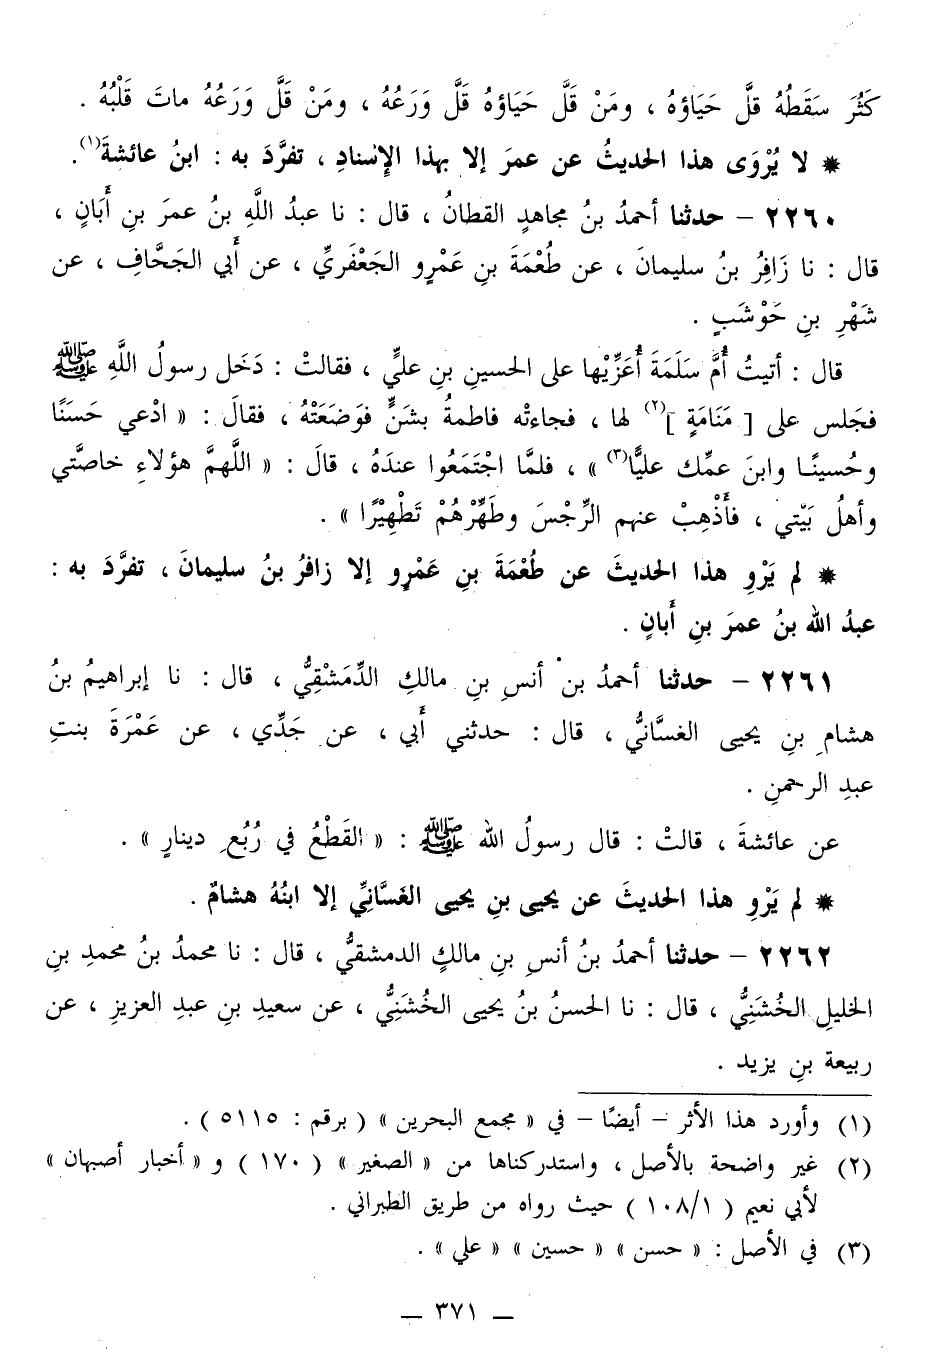 كَثُرَ سَقَطُهُ قلَّ حَيَاؤهُ ، ومَنْ قَلَّ حَيَاؤهُ قَلَّ وَرَعُهُ ، ومَنْ قَلَّ وَرَعُهُ ماتَ قَلْبُهُ .
* لا يُرْوَى هذا الحديثُ عن عمرَ إلا بهذا الإسنادِ ، تفرَّدَ به : ابنُ عائشةَ(١).
٢٢٦٠ – حدثنا أحمدُ بنُ مجاهدٍ القطانُ ، قال : نا عبدُ اللَّهِ بنُ عمرَ بنِ أَبَانٍ ،
قال : نا زَافِرُ بنُ سليمانَ ، عن طُعْمَةَ بنِ عَمْرٍو الجَعْفَريِّ ، عن أَبي الجَحَّافِ ، عن
شَهْرِ بنِ حَوْشَبٍ .
قال : أتيتُ أُمَّ سَلَمَةَ أُعَزِّيْها على الحسينِ بنِ عليٍّ ، فقالتْ : دَخَل رسولُ اللَّهِ ﷺ
فجَلس على [ مَنَامَةٍ ](٢) لها ، فجاءتْه فاطمةُ بشَنٍّ فوَضَعَتْهُ ، فقالَ : « ادْعي حَسَنًا
وحُسينًا وابنَ عمِّك عليًّا(٣) » ، فلمَّا اجْتَمَعُوا عندَهُ ، قالَ : « اللَّهمَّ هؤلاءِ خاصَّتي
وأهلُ بَيْتي ، فأَذْهِبْ عنهم الرِّجْسَ وطَهِّرْهُمْ تَطْهِيْرًا » .
* لم يَرْوِ هذا الحديثَ عن طُعْمَةَ بنِ عَمْرٍو إلا زافرُ بنُ سليمانَ ، تفرَّدَ به :
عبدُ الله بنُ عمرَ بنِ أَبانٍ .
٢٢٦١ – حدثنا أحمدُ بن أنسِ بنِ مالكِ الدِّمَشْقِيُّ ، قال : نا إبراهيمُ بنُ
هشامِ بنِ يحيى الغسَّانيُّ ، قال : حدثني أَبي ، عن جَدِّي ، عن عَمْرَةَ بنتِ
عبدِ الرحمنِ .
عن عائشةَ ، قالتْ : قال رسولُ الله ﷺ : « القَطْعُ في رُبُعِ دينارٍ » .
* لم يَرْوِ هذا الحديثَ عن يحيى بنِ يحيى الغَسَّانيِّ إلا ابنُهُ هشامٌ .
٢٢٦٢ – حدثنا أحمدُ بنُ أنسِ بنِ مالكٍ الدمشقيُّ ، قال : نا محمدُ بنُ محمدِ بنِ
الخليلِ الخُشَنِيُّ ، قال : نا الحسنُ بنُ يحيى الخُشَنِيُّ ، عن سعيدِ بنِ عبدِ العزيزِ ، عن
ربيعة بنِ يزيد .
(١) وأورد هذا الأثر – أيضًا – في « مجمع البحرين » ( برقم : ٥١١٥ ) .
(٢) غير واضحة بالأصل ، واستدركناها من « الصغير » ( ١٧٠ ) و « أخبار أصبهان »
لأبي نعيم ( ١٠٨/١ ) حيث رواه من طريق الطبراني .
(٣) في الأصل : « حسن » « حسين » « علي » .
– ٣٧١ –